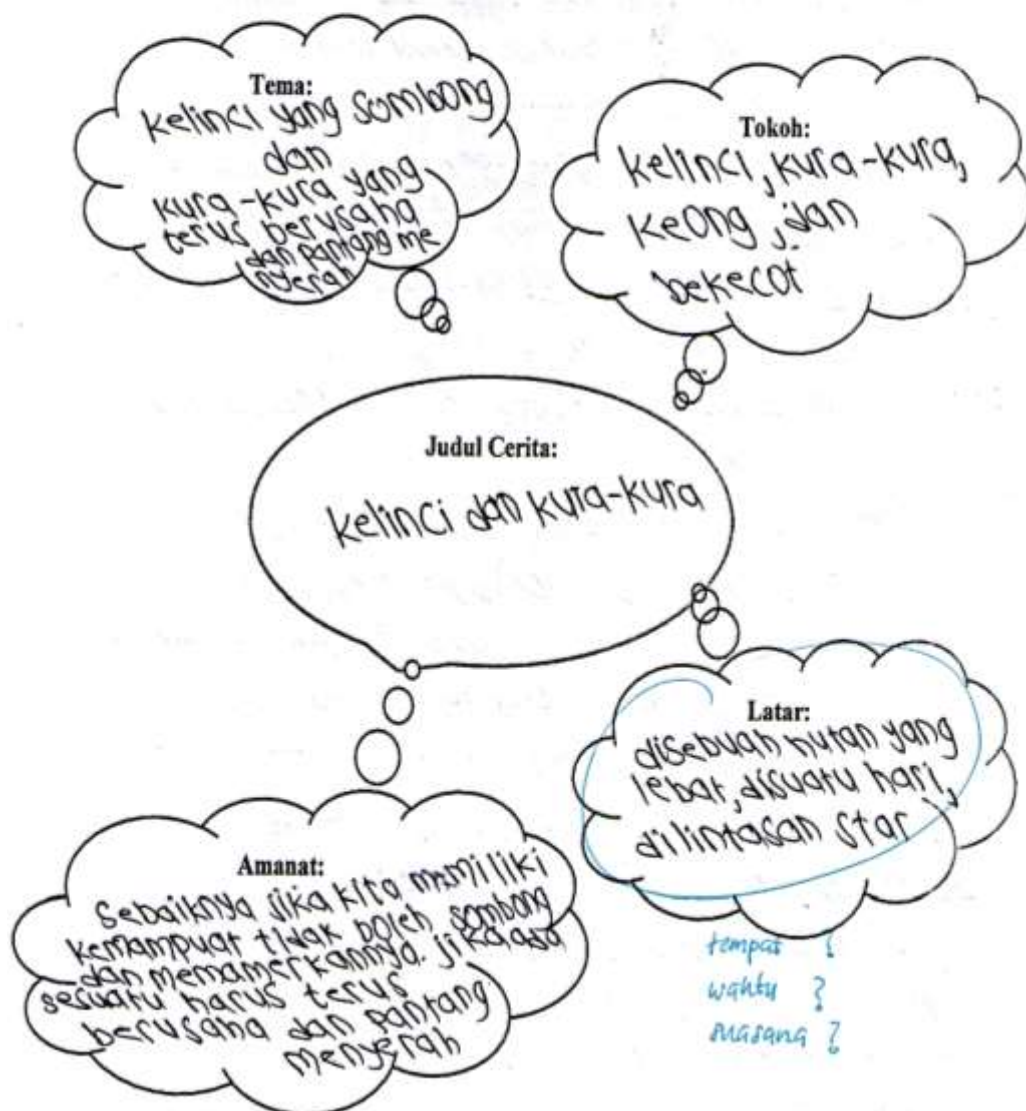 Tema:
kelinci yang sombong
dan
kura-kura yang
terus berusaha
dan pantang me
nyerah
Tokoh:
kelinci, kura-kura,
keong, dan
bekecot
Judul Cerita:
kelinci dan kura-kura
Latar:
disebuah hutan yang
lebat, disuatu hari,
dilintasan star
tempat ?
waktu ?
suasana ?
Amanat:
Sebaiknya jika kita memiliki
kemampuat tidak boleh sombong
dan memamerkannya. jika ada
sesuatu harus terus
berusaha dan pantang
menyerah